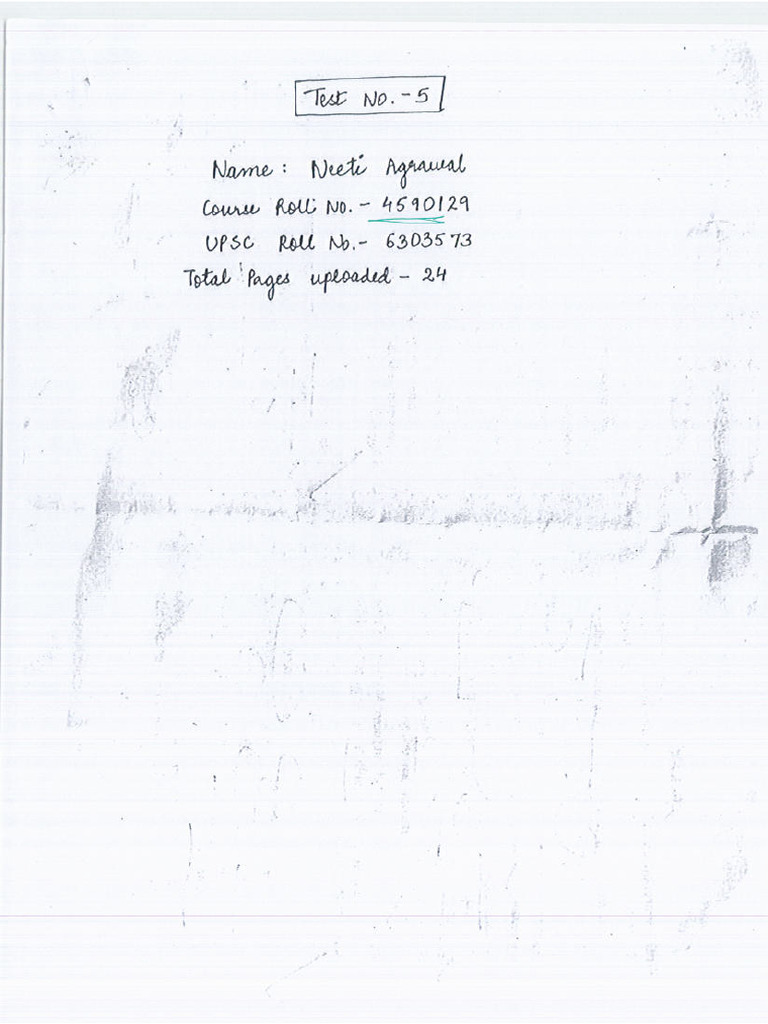 Test No. - 5
Name : Neeti Agrawal
Course Roll No. - 4590129
UPSC Roll No. - 6303573
Total Pages uploaded - 24